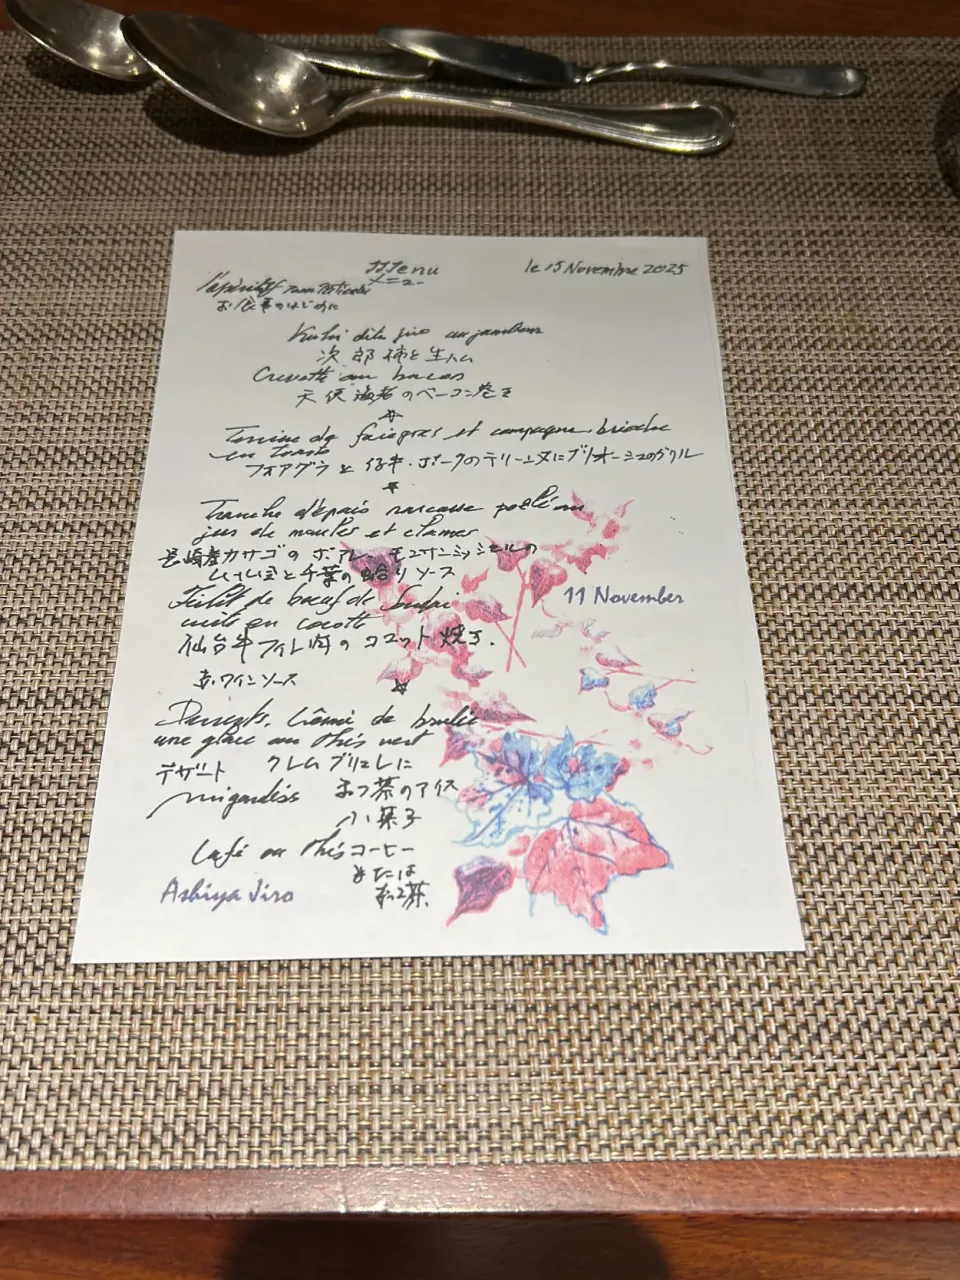 Menu
le 15 Novembre 2025
メニュー
l'apéritif
お食事のはじめに
Kaki dite jiro au jambon
次郎柿と生ハム
Crevette au bacon
天使海老のベーコン巻き
Terrine de foie gras et campagne, brioche
en toast
フォアグラと仔牛・ポークのテリーヌにブリオーシュのグリル
Tranche d'épais rascasse poêlé au
jus de moules et clames
長崎産カサゴのポアレ、モンサンミッシェルの
ムール貝と千葉の蛤りソース
Filet de bœuf de
cuite en cocotte
11 November
仙台牛フィレ肉のココット焼き、
赤ワインソース
Desserts, Crème de brulée
une glace au thés vert
デザート クレムブリュレに
migardiss まっ茶のアイス
小菓子
Café ou thés コーヒー
または
まっ茶
Ashiya Jiro